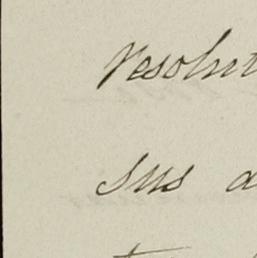 resolut
sus a